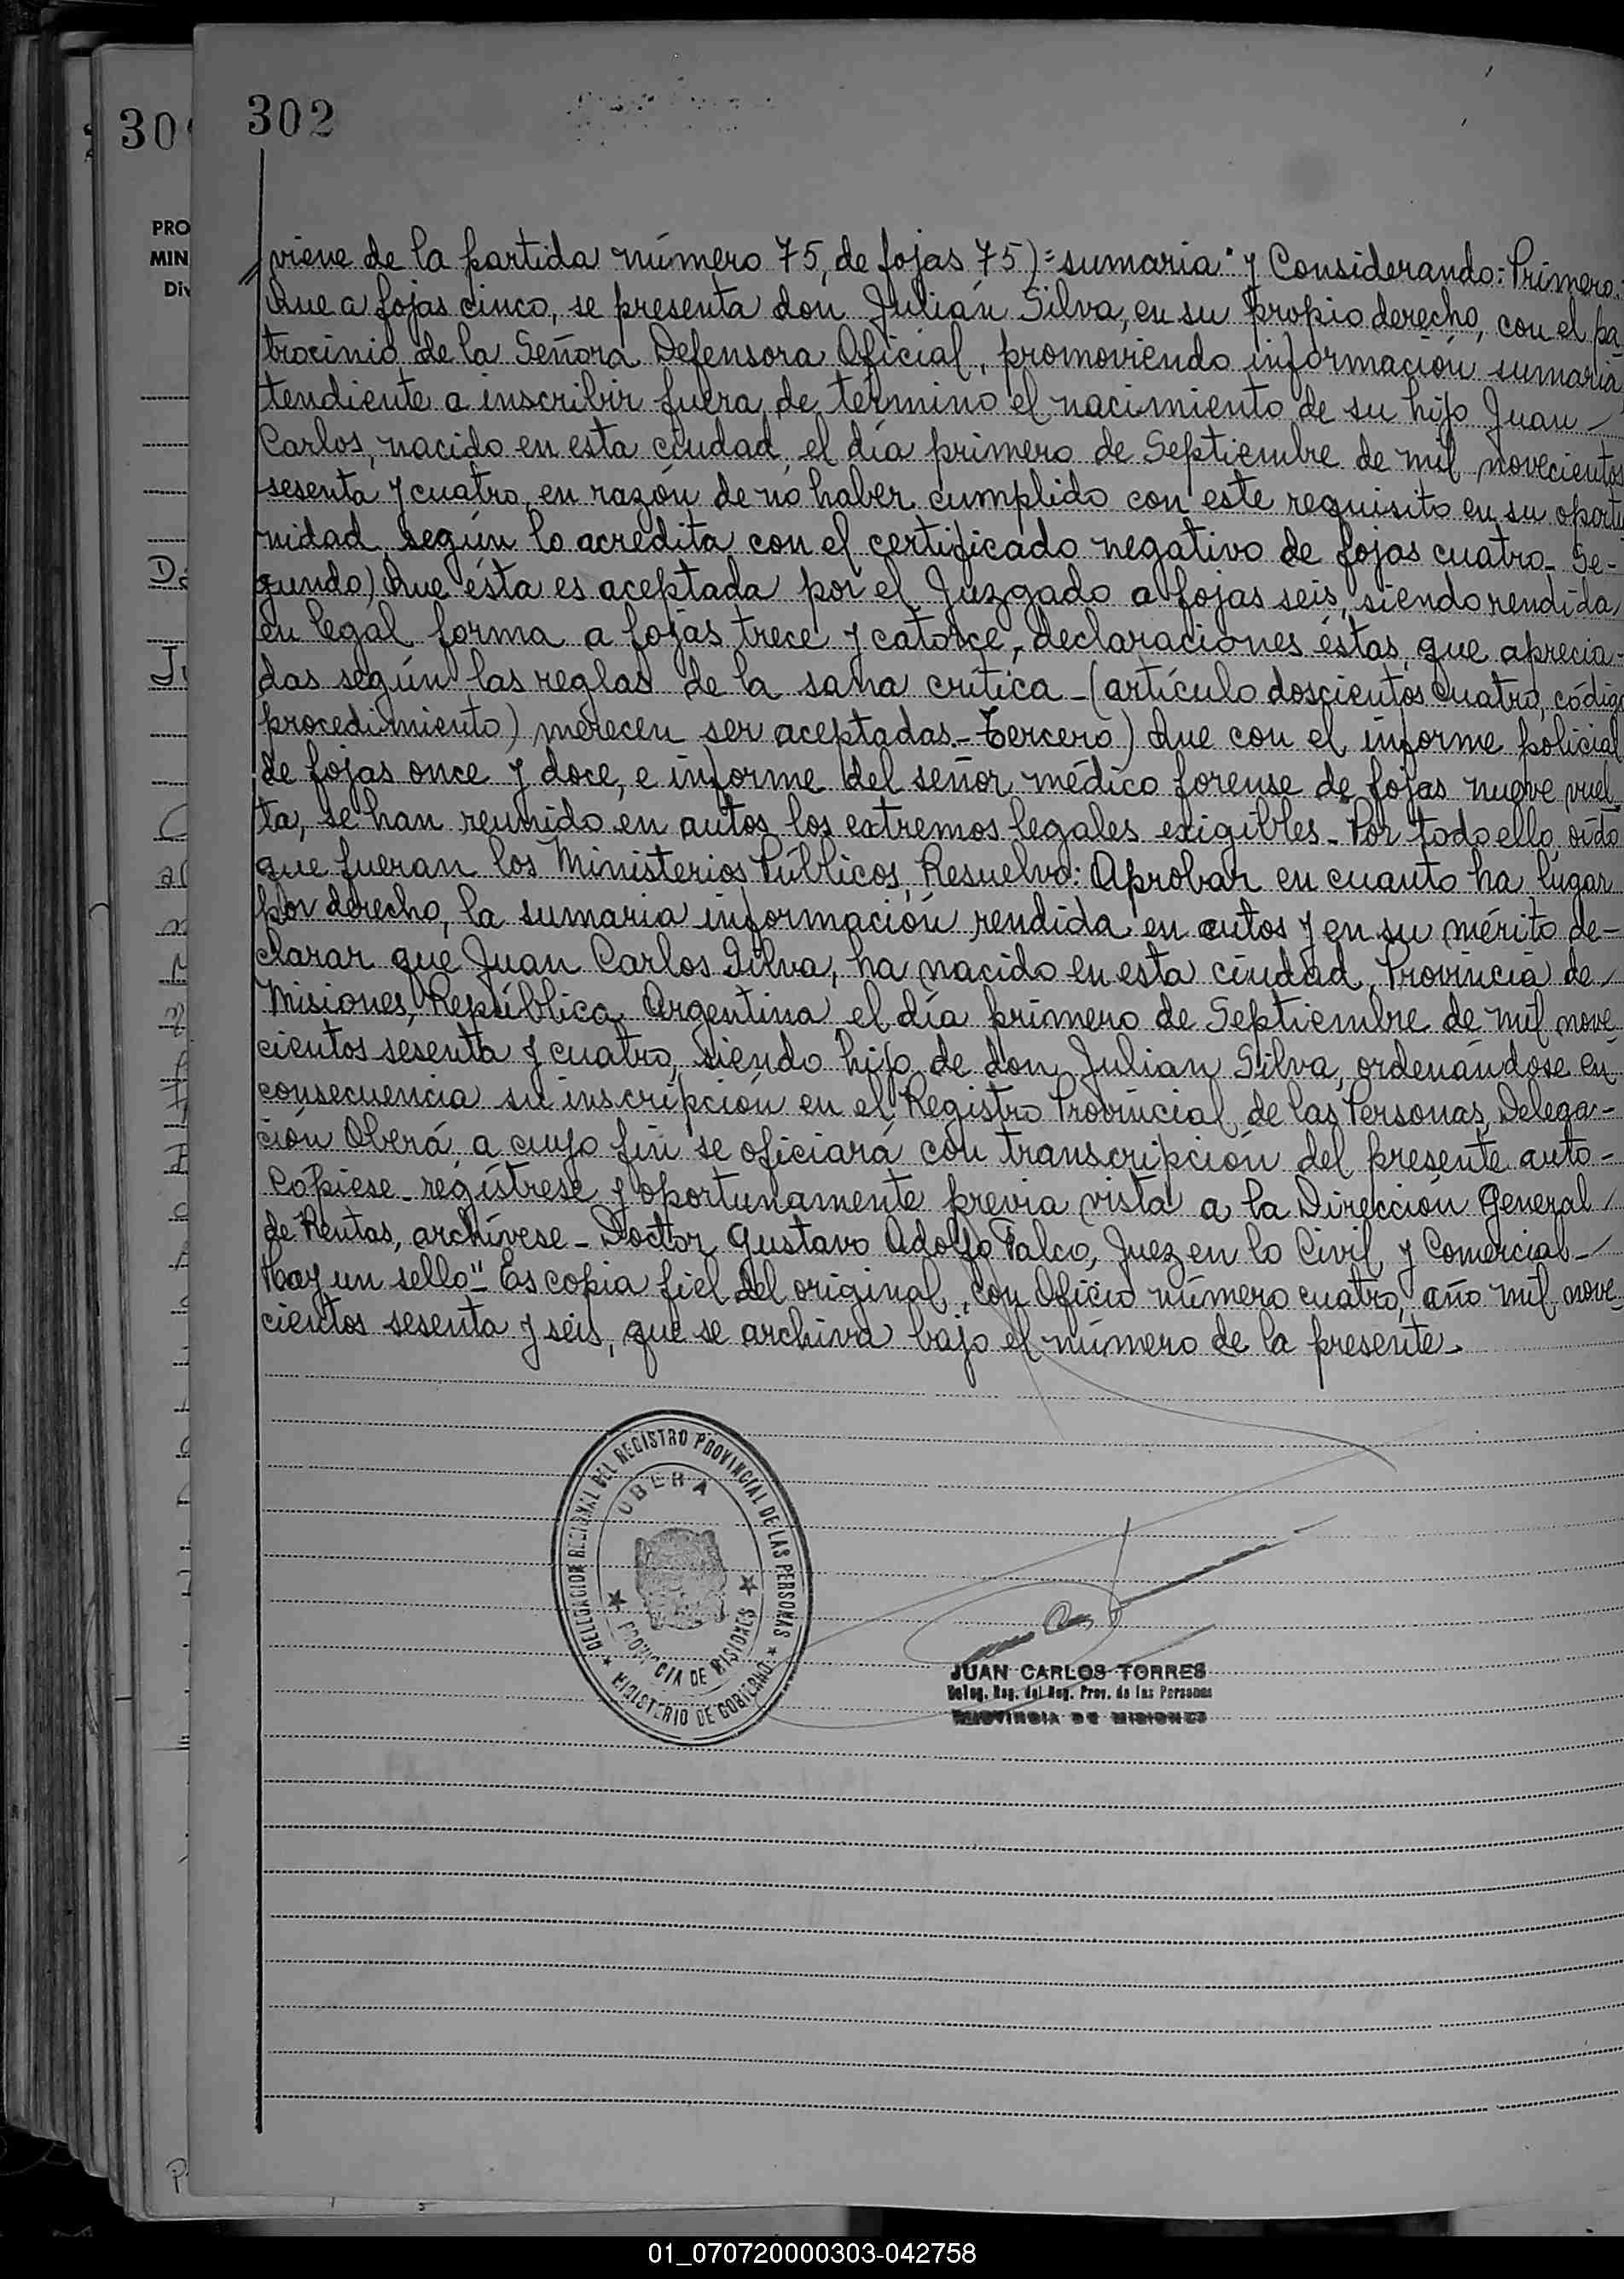 302
30
PRO
MIN
Div
viene de la partida número 75, de fojas 75)=sumaria" y Considerando: Primero:
Que a fojas cinco, se presenta don Julián Silva, en su propio derecho, con el pa
trocinio de la Señora Defensora Oficial, promoviendo información sumaria
tendiente a inscribir fuera de término el nacimiento de su hijo Juan
Carlos, nacido en esta ciudad, el día primero de Septiembre de mil novecientos
sesenta y cuatro, en razón de no haber cumplido con este requisito en su oportu
nidad, según lo acredita con el certificado negativo de fojas cuatro_ Se-
gundo) Que ésta es aceptada por el Juzgado a fojas seis, siendo rendida
en legal forma a fojas trece y catorce, declaraciones éstas, que aprecia-
das según las reglas de la sana crítica-(artículo doscientos cuatro, código
procedimiento) merecen ser aceptadas.-Tercero) Que con el informe policial
de fojas once y doce, e informe del señor médico forense de fojas nueve vuel
ta, se han reunido en autos los extremos legales exigibles_ Por todo ello, oído
que fueran los Ministerios Públicos, Resuelvo: Aprobar en cuanto ha lugar
por derecho, la sumaria información rendida en autos y en su mérito de-
clarar que Juan Carlos Silva, ha nacido en esta ciudad, Provincia de
Misiones, República Argentina el día primero de Septiembre de mil nove
cientos sesenta y cuatro, siendo hijo de don Julian Silva, ordenándose en
consecuencia su inscripción en el Registro Provincial de las Personas, Delega-
ción Oberá, a cuyo fin se oficiará con transcripción del presente auto-
Cópiese_ regístrese y oportunamente previa vista a la Dirección General
de Rentas, archívese_ Doctor Gustavo Adolfo Falco, Juez en lo Civil y Comercial_
Hay un sello"_ Es copia fiel del original, con Oficio número cuatro, año mil nove
cientos sesenta y seis, que se archiva bajo el número de la presente.
DELEGACION REGIONAL DEL REGISTRO PROVINCIAL DE LAS PERSONAS
OBERA
PROVINCIA DE MISIONES
MINISTERIO DE GOBIERNO
JUAN CARLOS TORRES
Deleg. Reg. del Reg. Prov. de las Personas
PROVINCIA DE MISIONES
01_070720000303-042758